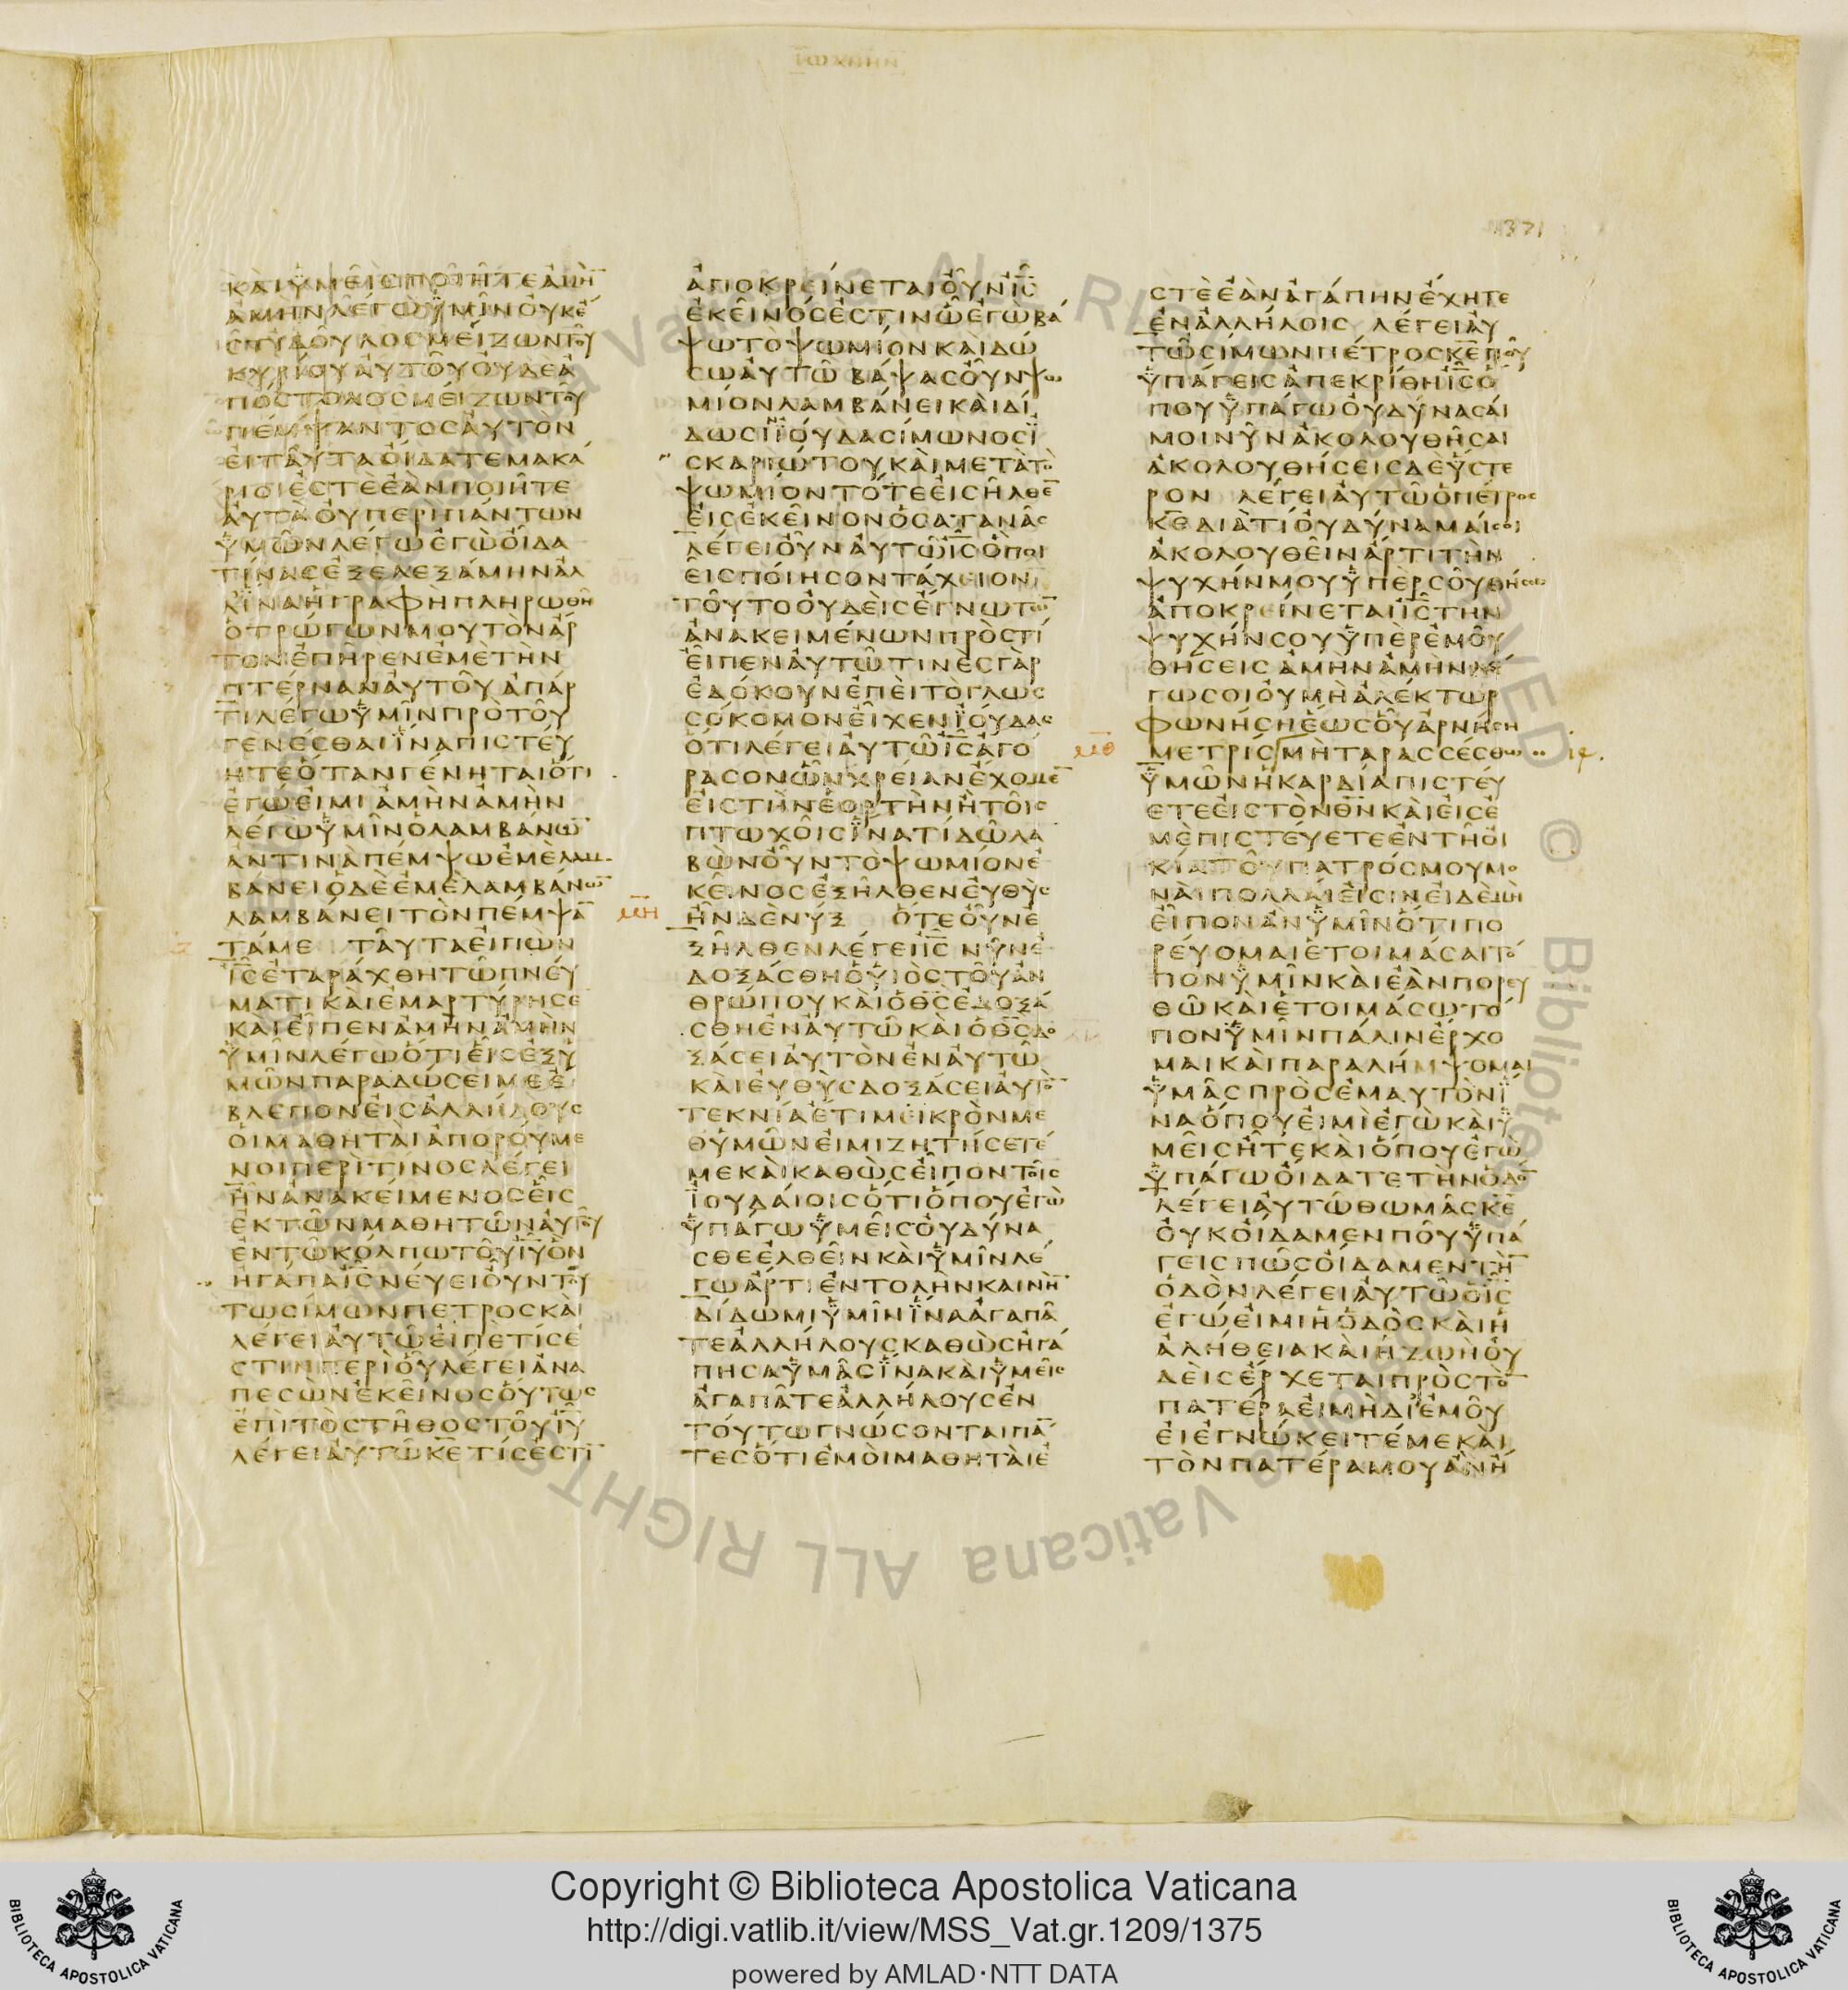 ΙΩΑΝΝΗΝ
1371
ΚΑΙ ΥΜΕΙΣ ΠΟΙΗΤΕ ΑΜΗ̅
ΑΜΗΝ ΛΕΓΩ ΥΜΙΝ ΟΥΚ Ε
ΣΤΙ ΔΟΥΛΟΣ ΜΕΙΖΩΝ ΤΟΥ
ΚΥΡΙΟΥ ΑΥΤΟΥ ΟΥΔΕ Α
ΠΟΣΤΟΛΟΣ ΜΕΙΖΩΝ ΤΟΥ
ΠΕΜΨΑΝΤΟΣ ΑΥΤΟΝ
ΕΙ ΤΑΥΤΑ ΟΙΔΑΤΕ ΜΑΚΑ
ΡΙΟΙ ΕΣΤΕ ΕΑΝ ΠΟΙΗΤΕ
ΑΥΤΑ ΟΥ ΠΕΡΙ ΠΑΝΤΩΝ
ΥΜΩΝ ΛΕΓΩ ΕΓΩ ΟΙΔΑ
ΤΙΝΑΣ ΕΞΕΛΕΞΑΜΗΝ ΑΛ
Λ ΙΝΑ Η ΓΡΑΦΗ ΠΛΗΡΩΘΗ
Ο ΤΡΩΓΩΝ ΜΟΥ ΤΟΝ ΑΡ
ΤΟΝ ΕΠΗΡΕΝ ΕΜΕ ΤΗΝ
ΠΤΕΡΝΑΝ ΑΥΤΟΥ ΑΠ ΑΡ
ΤΙ ΛΕΓΩ ΥΜΙΝ ΠΡΟ ΤΟΥ
ΓΕΝΕΣΘΑΙ ΙΝΑ ΠΙΣΤΕΥ
ΗΤΕ ΟΤΑΝ ΓΕΝΗΤΑΙ ΟΤΙ
ΕΓΩ ΕΙΜΙ ΑΜΗΝ ΑΜΗΝ
ΛΕΓΩ ΥΜΙΝ Ο ΛΑΜΒΑΝΩ̅
ΑΝ ΤΙΝΑ ΠΕΜΨΩ ΕΜΕ ΛΑΜ
ΒΑΝΕΙ Ο ΔΕ ΕΜΕ ΛΑΜΒΑΝΩ̅
ΛΑΜΒΑΝΕΙ ΤΟΝ ΠΕΜΨΑ̅
ΤΑ ΜΕ ΤΑΥΤΑ ΕΙΠΩΝ
Ι̅Σ̅ ΕΤΑΡΑΧΘΗ ΤΩ ΠΝΕΥ
ΜΑΤΙ ΚΑΙ ΕΜΑΡΤΥΡΗΣΕ
ΚΑΙ ΕΙΠΕΝ ΑΜΗΝ ΑΜΗΝ
ΥΜΙΝ ΛΕΓΩ ΟΤΙ ΕΙΣ ΕΞ Υ
ΜΩΝ ΠΑΡΑΔΩΣΕΙ ΜΕ Ε
ΒΛΕΠΟΝ ΕΙΣ ΑΛΛΗΛΟΥΣ
ΟΙ ΜΑΘΗΤΑΙ ΑΠΟΡΟΥΜΕ
ΝΟΙ ΠΕΡΙ ΤΙΝΟΣ ΛΕΓΕΙ
ΗΝ ΑΝΑΚΕΙΜΕΝΟΣ ΕΙΣ
ΕΚ ΤΩΝ ΜΑΘΗΤΩΝ ΑΥΤΟΥ
ΕΝ ΤΩ ΚΟΛΠΩ ΤΟΥ Ι̅Υ̅ ΟΝ
ΗΓΑΠΑ Ι̅Σ̅ ΝΕΥΕΙ ΟΥΝ ΤΟΥ
ΤΩ ΣΙΜΩΝ ΠΕΤΡΟΣ ΚΑΙ
ΛΕΓΕΙ ΑΥΤΩ ΕΙΠΕ ΤΙΣ Ε
ΣΤΙΝ ΠΕΡΙ ΟΥ ΛΕΓΕΙ ΑΝΑ
ΠΕΣΩΝ ΕΚΕΙΝΟΣ ΟΥΤΩΣ
ΕΠΙ ΤΟ ΣΤΗΘΟΣ ΤΟΥ Ι̅Υ̅
ΛΕΓΕΙ ΑΥΤΩ Κ̅Ε̅ ΤΙΣ ΕΣΤΙ̅
ΑΠΟΚΡΕΙΝΕΤΑΙ ΟΥΝ Ι̅Σ̅
ΕΚΕΙΝΟΣ ΕΣΤΙΝ Ω ΕΓΩ ΒΑ
ΨΩ ΤΟ ΨΩΜΙΟΝ ΚΑΙ ΔΩ
ΣΩ ΑΥΤΩ ΒΑΨΑΣ ΟΥΝ ΨΩ
ΜΙΟΝ ΛΑΜΒΑΝΕΙ ΚΑΙ ΔΙ
ΔΩΣΙΝ ΙΟΥΔΑ ΣΙΜΩΝΟΣ Ι
ΣΚΑΡΙΩΤΟΥ ΚΑΙ ΜΕΤΑ ΤΟ
ΨΩΜΙΟΝ ΤΟΤΕ ΕΙΣΗΛΘΕ̅
ΕΙΣ ΕΚΕΙΝΟΝ Ο ΣΑΤΑΝΑΣ
ΛΕΓΕΙ ΟΥΝ ΑΥΤΩ Ι̅Σ̅ Ο ΠΟΙ
ΕΙΣ ΠΟΙΗΣΟΝ ΤΑΧΕΙΟΝ
ΤΟΥΤΟ ΟΥΔΕΙΣ ΕΓΝΩ ΤΩ̅
ΑΝΑΚΕΙΜΕΝΩΝ ΠΡΟΣ ΤΙ
ΕΙΠΕΝ ΑΥΤΩ ΤΙΝΕΣ ΓΑΡ
ΕΔΟΚΟΥΝ ΕΠΕΙ ΤΟ ΓΛΩΣ
ΣΟΚΟΜΟΝ ΕΙΧΕΝ ΙΟΥΔΑΣ
ΟΤΙ ΛΕΓΕΙ ΑΥΤΩ Ι̅Σ̅ ΑΓΟ
ΡΑΣΟΝ ΩΝ ΧΡΕΙΑΝ ΕΧΟΜΕ̅
ΕΙΣ ΤΗΝ ΕΟΡΤΗΝ Η ΤΟΙΣ
ΠΤΩΧΟΙΣ ΙΝΑ ΤΙ ΔΩ ΛΑ
ΒΩΝ ΟΥΝ ΤΟ ΨΩΜΙΟΝ Ε
ΚΕΙΝΟΣ ΕΞΗΛΘΕΝ ΕΥΘΥΣ
ΜΗ ΗΝ ΔΕ ΝΥΞ ΟΤΕ ΟΥΝ Ε
ΞΗΛΘΕΝ ΛΕΓΕΙ Ι̅Σ̅ ΝΥΝ Ε
ΔΟΞΑΣΘΗ Ο ΥΙΟΣ ΤΟΥ ΑΝ
ΘΡΩΠΟΥ ΚΑΙ Ο Θ̅Σ̅ ΕΔΟΞΑ
ΣΘΗ ΕΝ ΑΥΤΩ ΚΑΙ Ο Θ̅Σ̅ ΔΟ
ΞΑΣΕΙ ΑΥΤΟΝ ΕΝ ΑΥΤΩ
ΚΑΙ ΕΥΘΥΣ ΔΟΞΑΣΕΙ ΑΥΤΟ̅
ΤΕΚΝΙΑ ΕΤΙ ΜΕΙΚΡΟΝ ΜΕ
Θ ΥΜΩΝ ΕΙΜΙ ΖΗΤΗΣΕΤΕ
ΜΕ ΚΑΙ ΚΑΘΩΣ ΕΙΠΟΝ ΤΟΙΣ
ΙΟΥΔΑΙΟΙΣ ΟΤΙ ΟΠΟΥ ΕΓΩ
ΥΠΑΓΩ ΥΜΕΙΣ ΟΥ ΔΥΝΑ
ΣΘΕ ΕΛΘΕΙΝ ΚΑΙ ΥΜΙΝ ΛΕ
ΓΩ ΑΡΤΙ ΕΝΤΟΛΗΝ ΚΑΙΝΗ̅
ΔΙΔΩΜΙ ΥΜΙΝ ΙΝΑ ΑΓΑΠΑ
ΤΕ ΑΛΛΗΛΟΥΣ ΚΑΘΩΣ ΗΓΑ
ΠΗΣΑ ΥΜΑΣ ΙΝΑ ΚΑΙ ΥΜΕΙΣ
ΑΓΑΠΑΤΕ ΑΛΛΗΛΟΥΣ ΕΝ
ΤΟΥΤΩ ΓΝΩΣΟΝΤΑΙ ΠΑ̅
ΤΕΣ ΟΤΙ ΕΜΟΙ ΜΑΘΗΤΑΙ Ε
ΣΤΕ ΕΑΝ ΑΓΑΠΗΝ ΕΧΗΤΕ
ΕΝ ΑΛΛΗΛΟΙΣ ΛΕΓΕΙ ΑΥ
ΤΩ ΣΙΜΩΝ ΠΕΤΡΟΣ Κ̅Ε̅ ΠΟΥ
ΥΠΑΓΕΙΣ ΑΠΕΚΡΙΘΗ Ι̅Σ̅ Ο
ΠΟΥ ΥΠΑΓΩ ΟΥ ΔΥΝΑΣΑΙ
ΜΟΙ ΝΥΝ ΑΚΟΛΟΥΘΗΣΑΙ
ΑΚΟΛΟΥΘΗΣΕΙΣ ΔΕ ΥΣΤΕ
ΡΟΝ ΛΕΓΕΙ ΑΥΤΩ Ο ΠΕΤΡΟΣ
Κ̅Ε̅ ΔΙΑ ΤΙ ΟΥ ΔΥΝΑΜΑΙ ΣΟΙ
ΑΚΟΛΟΥΘΕΙΝ ΑΡΤΙ ΤΗΝ
ΨΥΧΗΝ ΜΟΥ ΥΠΕΡ ΣΟΥ ΘΗΣΩ
ΑΠΟΚΡΕΙΝΕΤΑΙ Ι̅Σ̅ ΤΗΝ
ΨΥΧΗΝ ΣΟΥ ΥΠΕΡ ΕΜΟΥ
ΘΗΣΕΙΣ ΑΜΗΝ ΑΜΗΝ ΛΕ
ΓΩ ΣΟΙ ΟΥ ΜΗ ΑΛΕΚΤΩΡ
ΦΩΝΗΣΗ ΕΩΣ ΟΥ ΑΡΝΗΣΗ
ΜΘ ΜΕ ΤΡΙΣ ΜΗ ΤΑΡΑΣΣΕΣΘΩ
ΥΜΩΝ Η ΚΑΡΔΙΑ ΠΙΣΤΕΥ
ΕΤΕ ΕΙΣ ΤΟΝ Θ̅Ν̅ ΚΑΙ ΕΙΣ Ε
ΜΕ ΠΙΣΤΕΥΕΤΕ ΕΝ ΤΗ ΟΙ
ΚΙΑ ΤΟΥ ΠΑΤΡΟΣ ΜΟΥ ΜΟ
ΝΑΙ ΠΟΛΛΑΙ ΕΙΣΙΝ ΕΙ ΔΕ ΜΗ
ΕΙΠΟΝ ΑΝ ΥΜΙΝ ΟΤΙ ΠΟ
ΡΕΥΟΜΑΙ ΕΤΟΙΜΑΣΑΙ ΤΟ
ΠΟΝ ΥΜΙΝ ΚΑΙ ΕΑΝ ΠΟΡΕΥ
ΘΩ ΚΑΙ ΕΤΟΙΜΑΣΩ ΤΟ
ΠΟΝ ΥΜΙΝ ΠΑΛΙΝ ΕΡΧΟ
ΜΑΙ ΚΑΙ ΠΑΡΑΛΗΜΨΟΜΑΙ
ΥΜΑΣ ΠΡΟΣ ΕΜΑΥΤΟΝ Ι
ΝΑ ΟΠΟΥ ΕΙΜΙ ΕΓΩ ΚΑΙ Υ
ΜΕΙΣ ΗΤΕ ΚΑΙ ΟΠΟΥ ΕΓΩ
ΥΠΑΓΩ ΟΙΔΑΤΕ ΤΗΝ ΟΔΟ̅
ΛΕΓΕΙ ΑΥΤΩ ΘΩΜΑΣ Κ̅Ε̅
ΟΥΚ ΟΙΔΑΜΕΝ ΠΟΥ ΥΠΑ
ΓΕΙΣ ΠΩΣ ΟΙΔΑΜΕΝ ΤΗ̅
ΟΔΟΝ ΛΕΓΕΙ ΑΥΤΩ Ο Ι̅Σ̅
ΕΓΩ ΕΙΜΙ Η ΟΔΟΣ ΚΑΙ Η
ΑΛΗΘΕΙΑ ΚΑΙ Η ΖΩΗ ΟΥ
ΔΕΙΣ ΕΡΧΕΤΑΙ ΠΡΟΣ ΤΟ̅
ΠΑΤΕΡΑ ΕΙ ΜΗ ΔΙ ΕΜΟΥ
ΕΙ ΕΓΝΩΚΕΙΤΕ ΜΕ ΚΑΙ
ΤΟΝ ΠΑΤΕΡΑ ΜΟΥ ΑΝ Η
Copyright © Biblioteca Apostolica Vaticana
http://digi.vatlib.it/view/MSS_Vat.gr.1209/1375
powered by AMLAD·NTT DATA
BIBLIOTECA APOSTOLICA VATICANA
BIBLIOTECA APOSTOLICA VATICANA